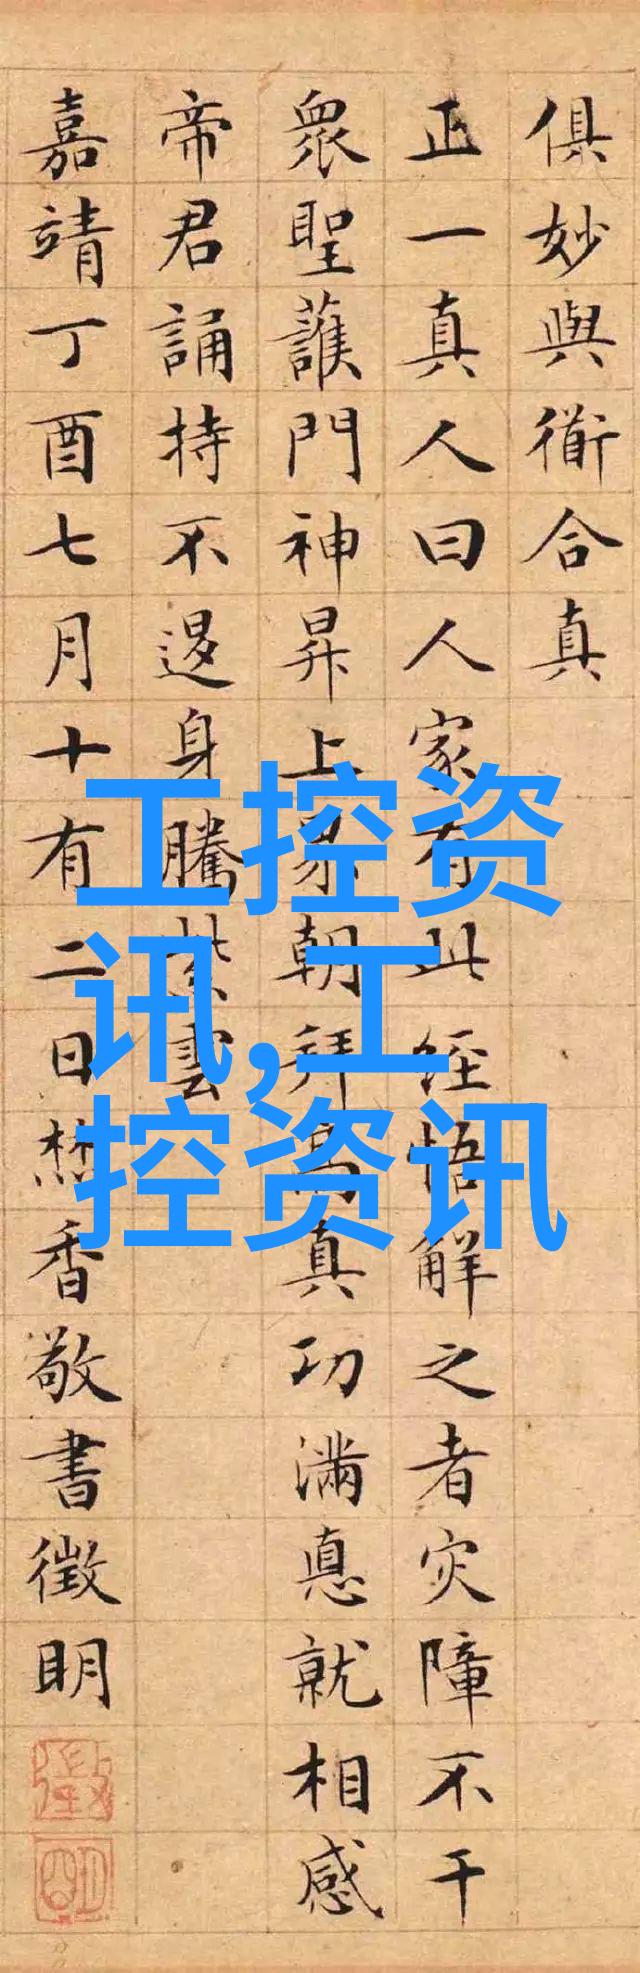 俱妙與衜合真
正一真人曰人家有此經悟解之者灾障不干
衆聖護門神昇上界朝拜高真功滿悳就相感
帝君誦持不退身騰紫雲
嘉靖丁酉七月十有二日焚香敬書徵明
工控资
讯,工
控资讯